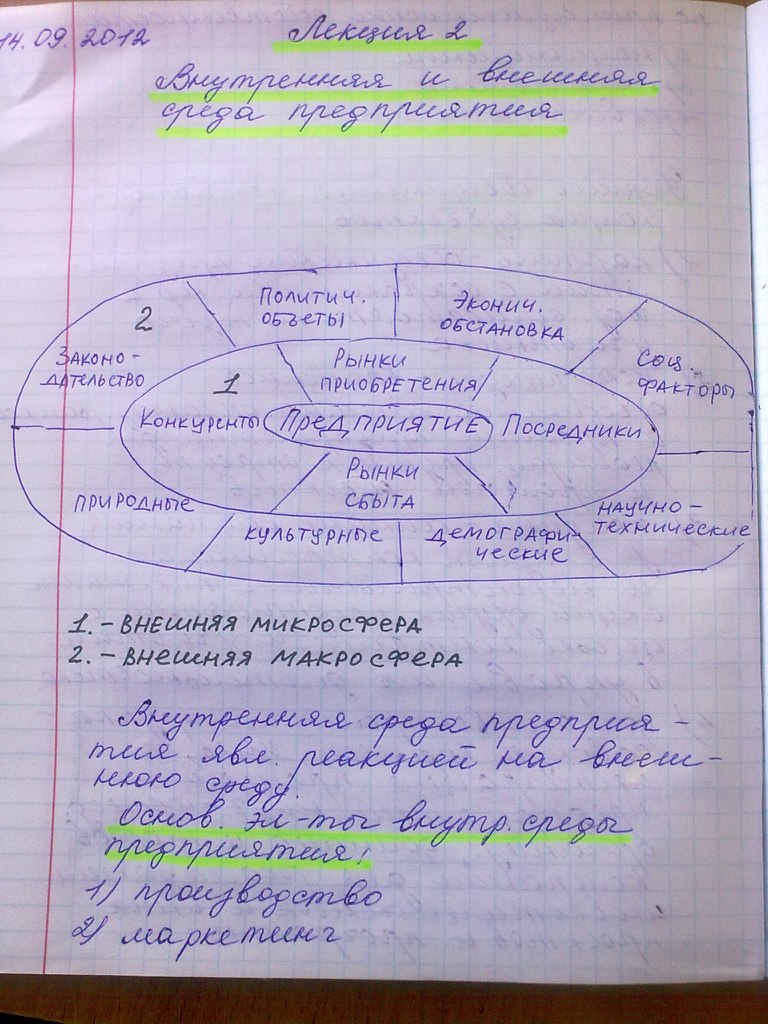 14.09.2012
Лекция 2
Внутренняя и внешняя
среда предприятия
2
Политич.
объеты
Эконич.
обстановка
Законо-
дательство
1
Рынки
приобретения
Соц.
факторы
Конкуренты
Предприятие
Посредники
Рынки
сбыта
природные
культурные
демографи-
ческие
научно-
технические
1. - внешняя микросфера
2. - внешняя макросфера
Внутренняя среда предприя-
тия явл. реакцией на внеш-
нюю среду.
Основ. эл-ты внутр. среды
предприятия:
1) производство
2) маркетинг